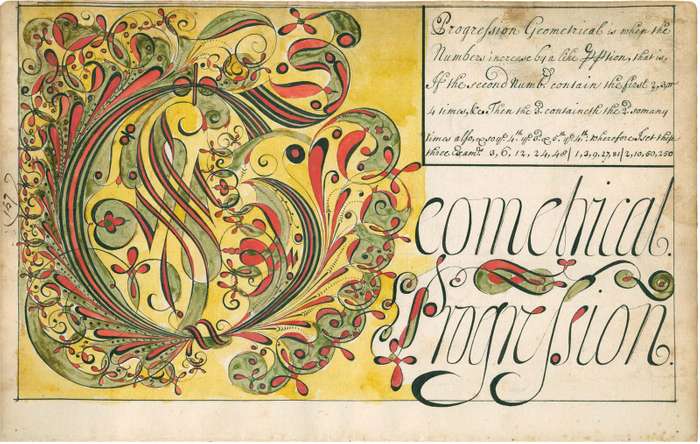 Progression Geometrical is when the
Numbers increase by a like tion, that is,
If the second Numb.r contain the first 2, 3, or
4 times, &c. Then the 3.d containeth the 2.d so many
times also, & so ye 4.th ye 3.d & 5.th ye 4.th: wherefore let these
three Exam.s 3, 6, 12, 24, 48 / 1, 3, 9, 27, 81 / 2, 10, 50, 250
Geometrical.
Progression.
(157)